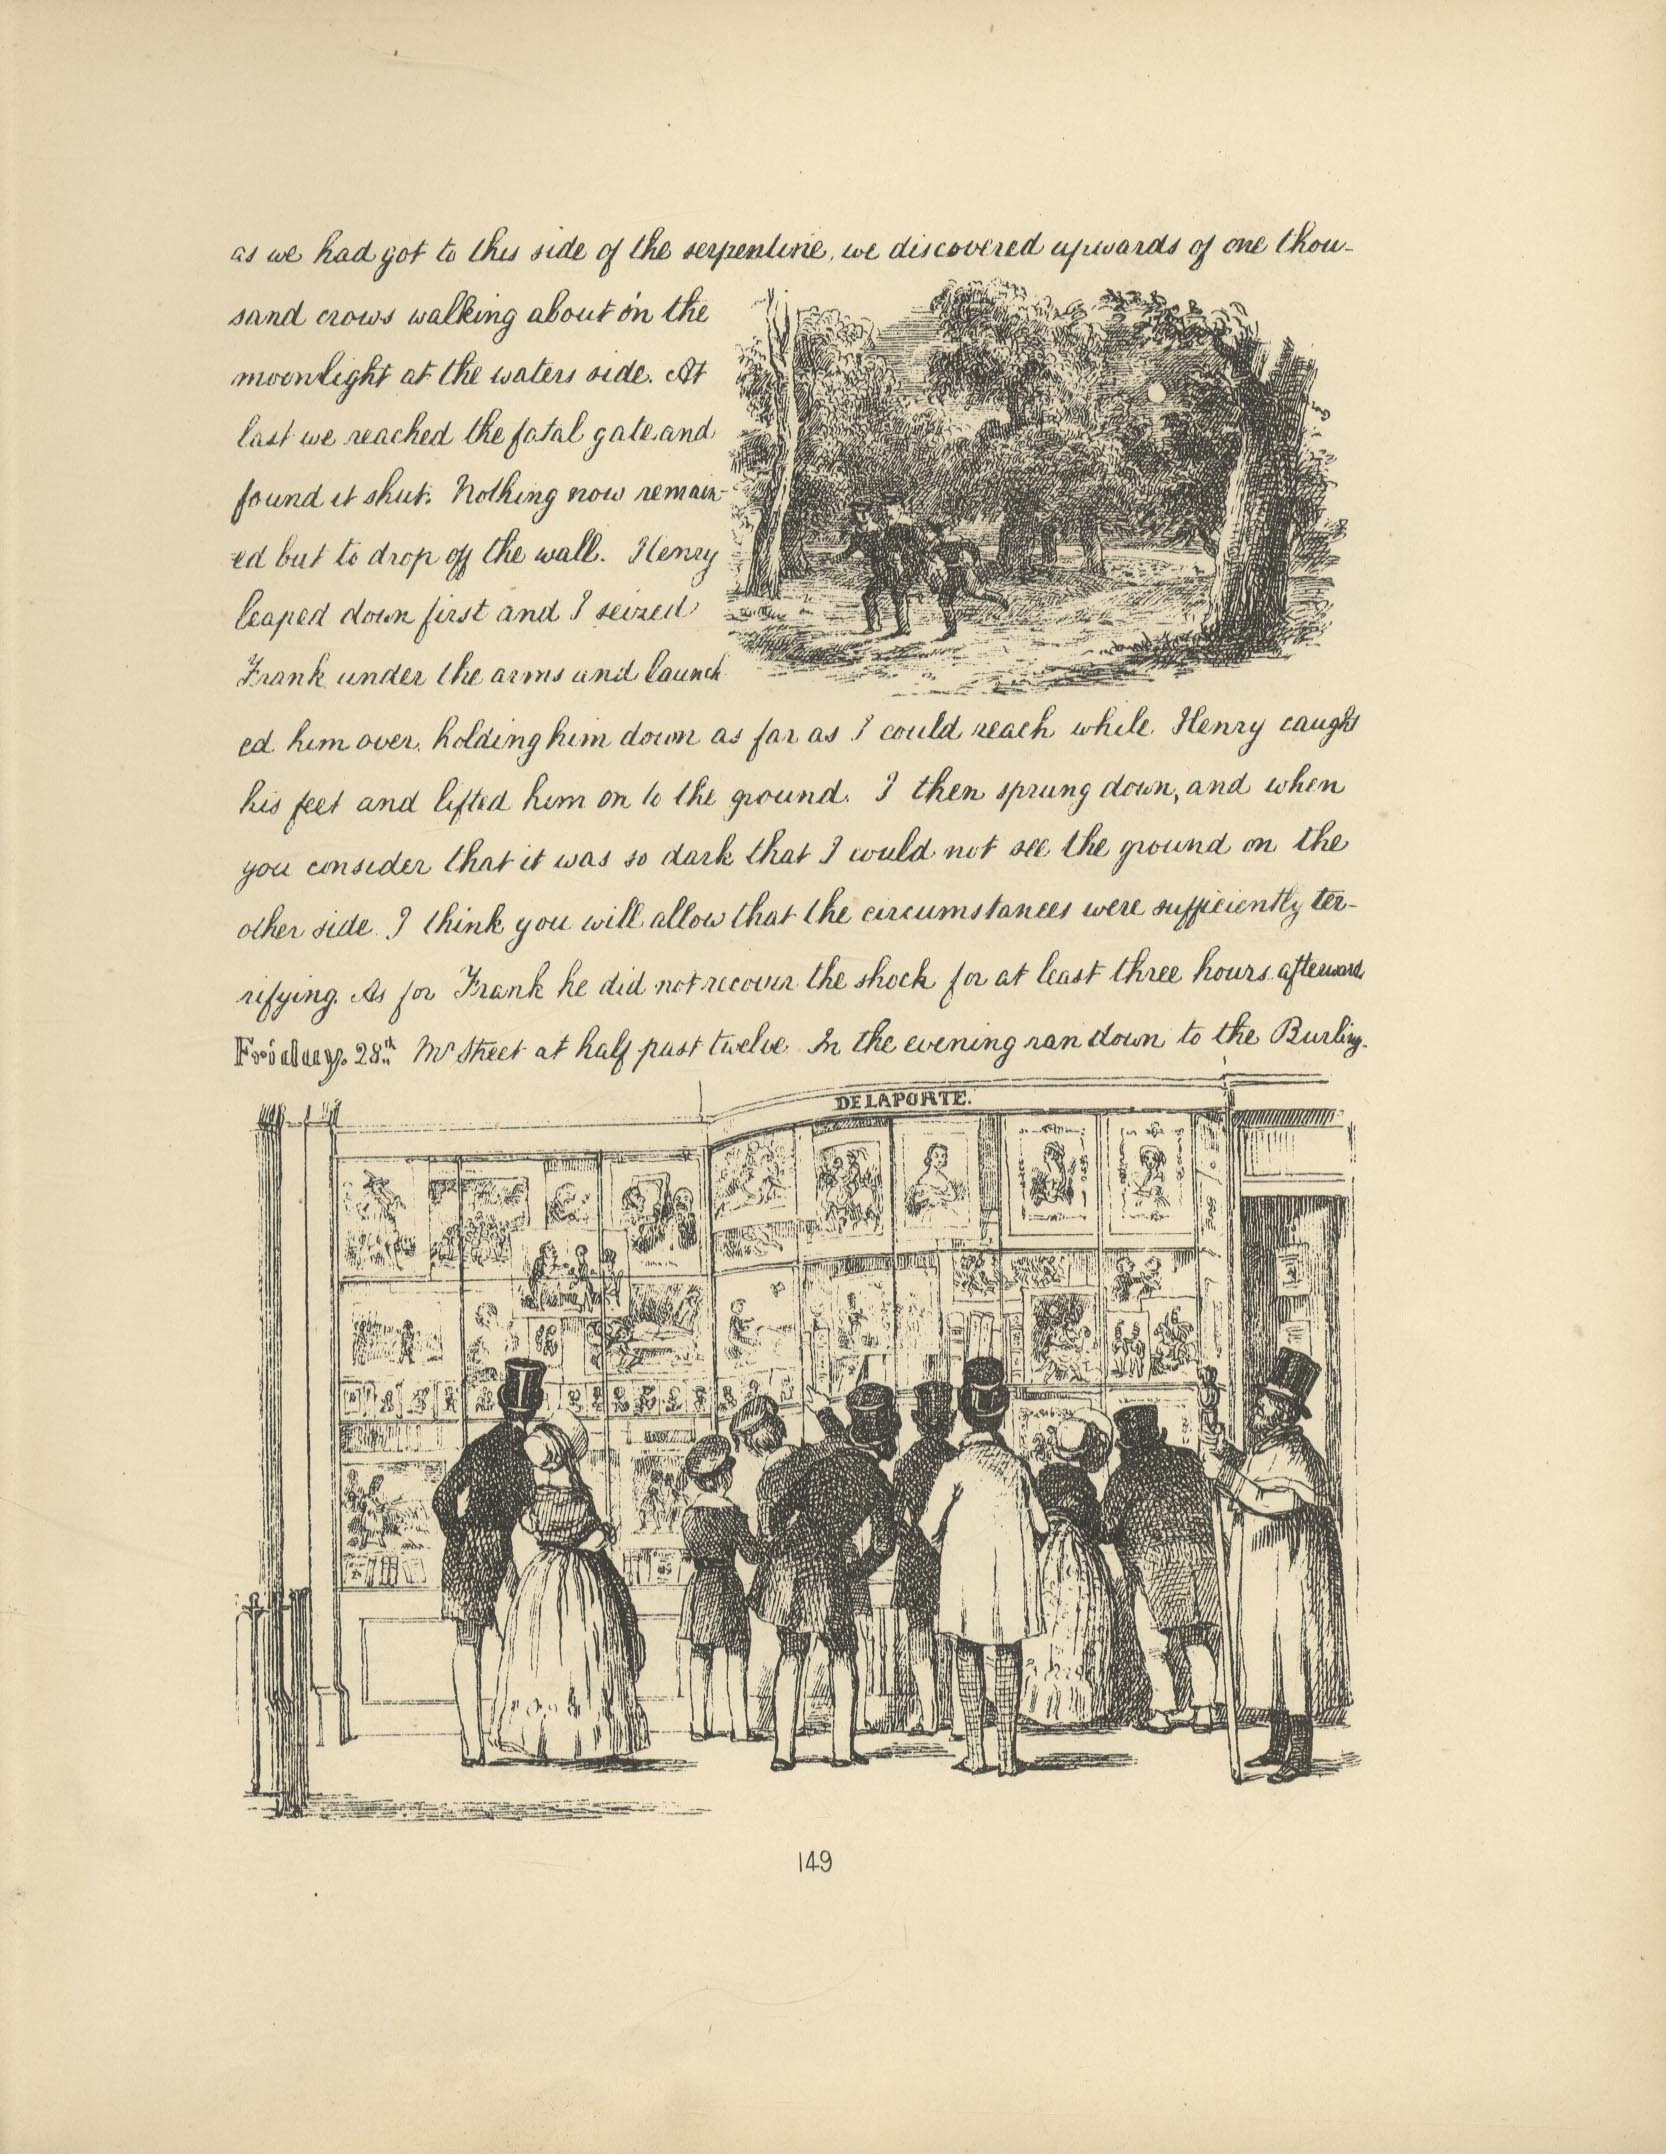 as we had got to this side of the serpentine, we discovered upwards of one thou-
sand crows walking about in the
moonlight at the waters side. At
last we reached the fatal gate and
found it shut. Nothing now remain-
ed but to drop off the wall. Henry
leaped down first and I seized
Frank under the arms and launch
ed him over, holding him down as far as I could reach while Henry caught
his feet and lifted him on to the ground. I then sprung down, and when
you consider that it was so dark that I could not see the ground on the
other side I think you will allow that the circumstances were sufficiently ter-
rifying. As for Frank he did not recover the shock for at least three hours afterward
Friday. 28th Mr Street at half past twelve In the evening ran down to the Burling-
DELAPORTE.
149